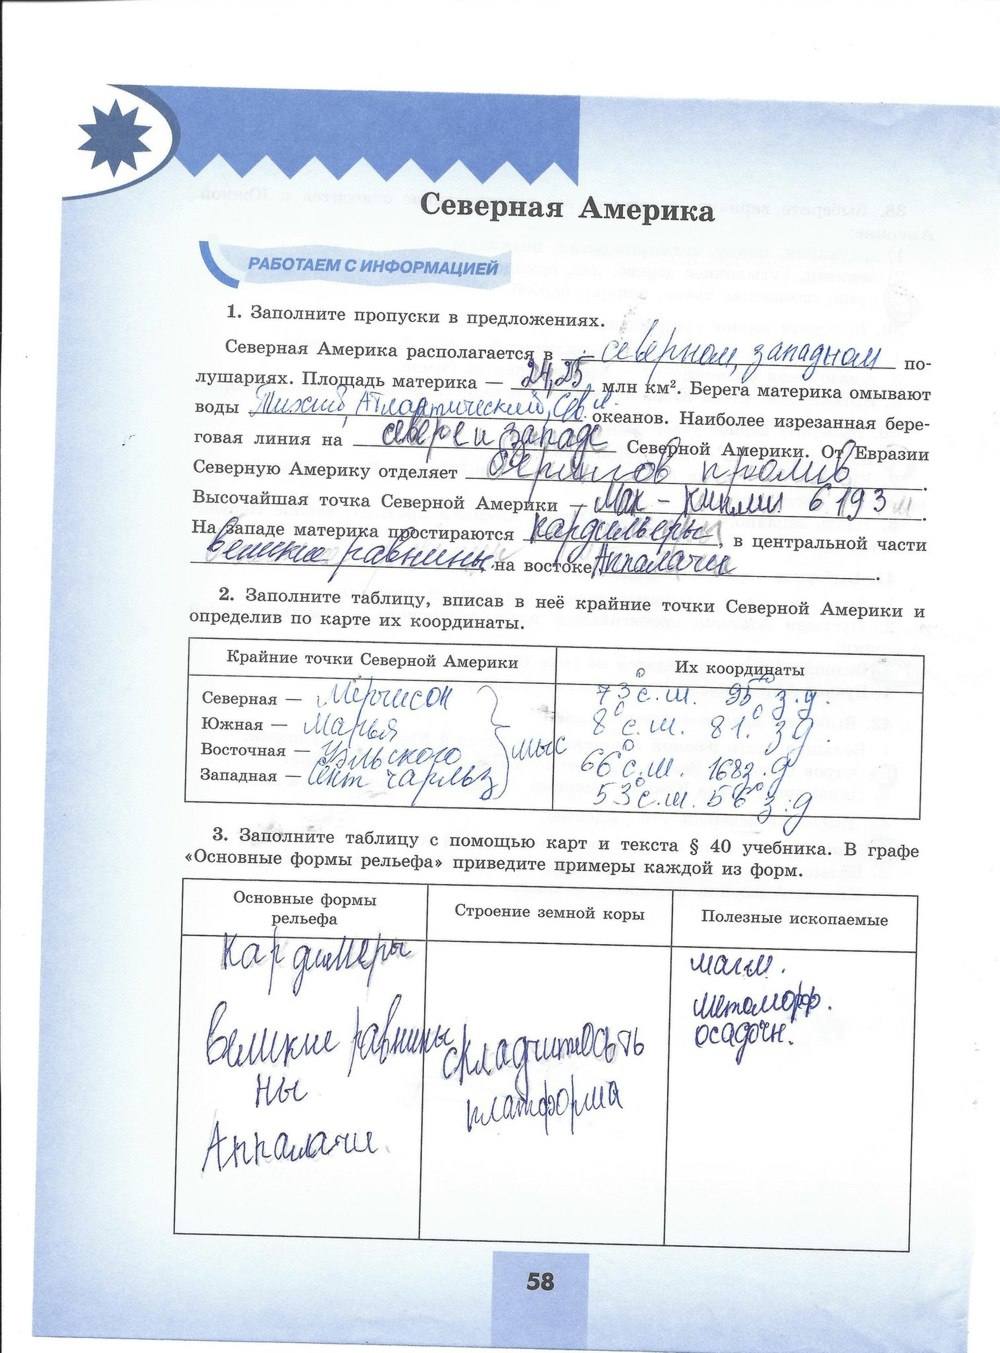 Северная Америка
РАБОТАЕМ С ИНФОРМАЦИЕЙ
1. Заполните пропуски в предложениях.
Северная Америка располагается в северном, западном по-
лушариях. Площадь материка — 24,25 млн км². Берега материка омывают
воды Тихий, Атлантический, Сев. океанов. Наиболее изрезанная бере-
говая линия на севере и западе Северной Америки. От Евразии
Северную Америку отделяет берингов пролив.
Высочайшая точка Северной Америки — Мак-Кинли 6193 м.
На западе материка простираются кордильеры, в центральной части
великие равнины, на востоке Аппалачи.
2. Заполните таблицу, вписав в неё крайние точки Северной Америки и
определив по карте их координаты.
Крайние точки Северной Америки Их координаты
Северная — Мерчисон 73° с.ш. 95° з.д.
Южная — Марья 8° с.ш. 81° з.д.
Восточная — Уэльского мыс 66° с.ш. 168 з.д
Западная — Сент чарльз 53° с.ш. 56° з.д
3. Заполните таблицу с помощью карт и текста § 40 учебника. В графе
«Основные формы рельефа» приведите примеры каждой из форм.
Основные формы
рельефа
Строение земной коры
Полезные ископаемые
Кордильеры
великие равнины
ны
Аппалачи
складчатость
платформа
магм.
метаморф.
осадочн.
58